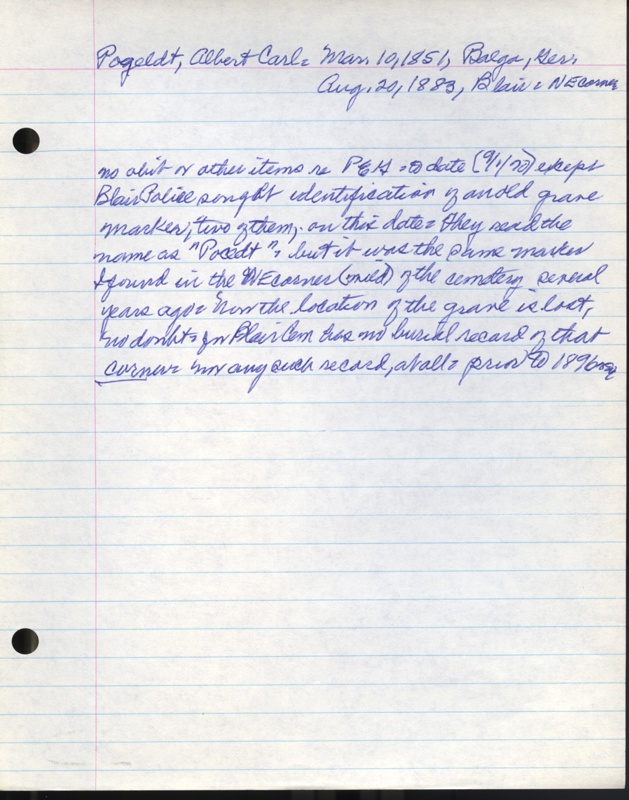 Pogeldt, Albert Carl = Mar. 10, 1851, Balga, Ger.
Aug. 20, 1883, Blair = NE corner
no obit or other items re P E H = to date (9/1/70) except
Blair Police sought identification of an old grave
marker, two of them, on this date = they read the
name as "Pocedt" = but it was the same marker
I found in the NE corner of the cemetery several
years ago = Now the location of the grave is lost,
no doubt = for Blair Cem has no burial record of that
corner = nor any such record, at all = prior to 1896